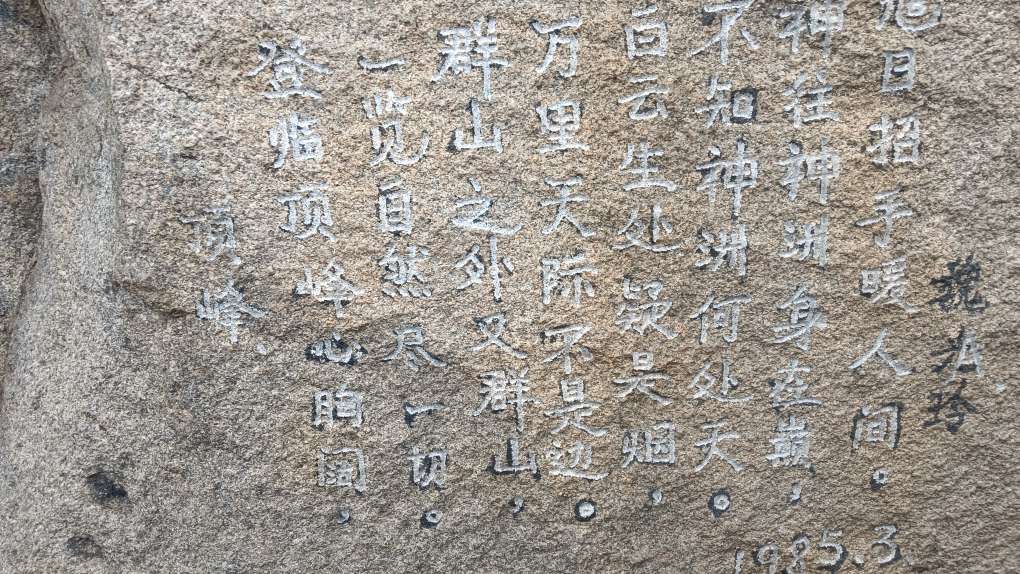 顶峰
登临顶峰心胸阔，
一览自然尽一切。
群山之外又群山，
万里天际不是边。
白云生处疑是烟，
不知神洲何处天。
神往神洲身在巅，
旭日招手暖人间。
1985.3